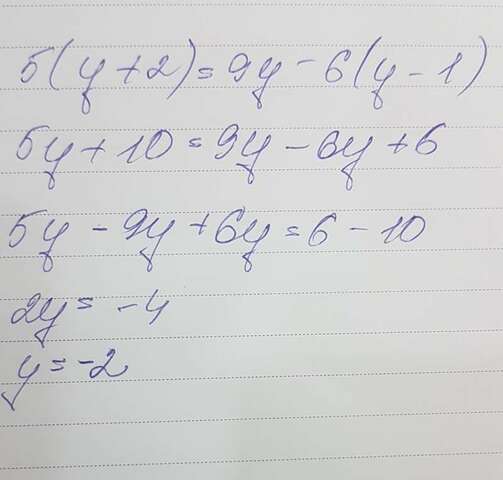 5(y+2)=9y-6(y-1)
5y+10=9y-6y+6
5y-9y+6y=6-10
2y=-4
y=-2